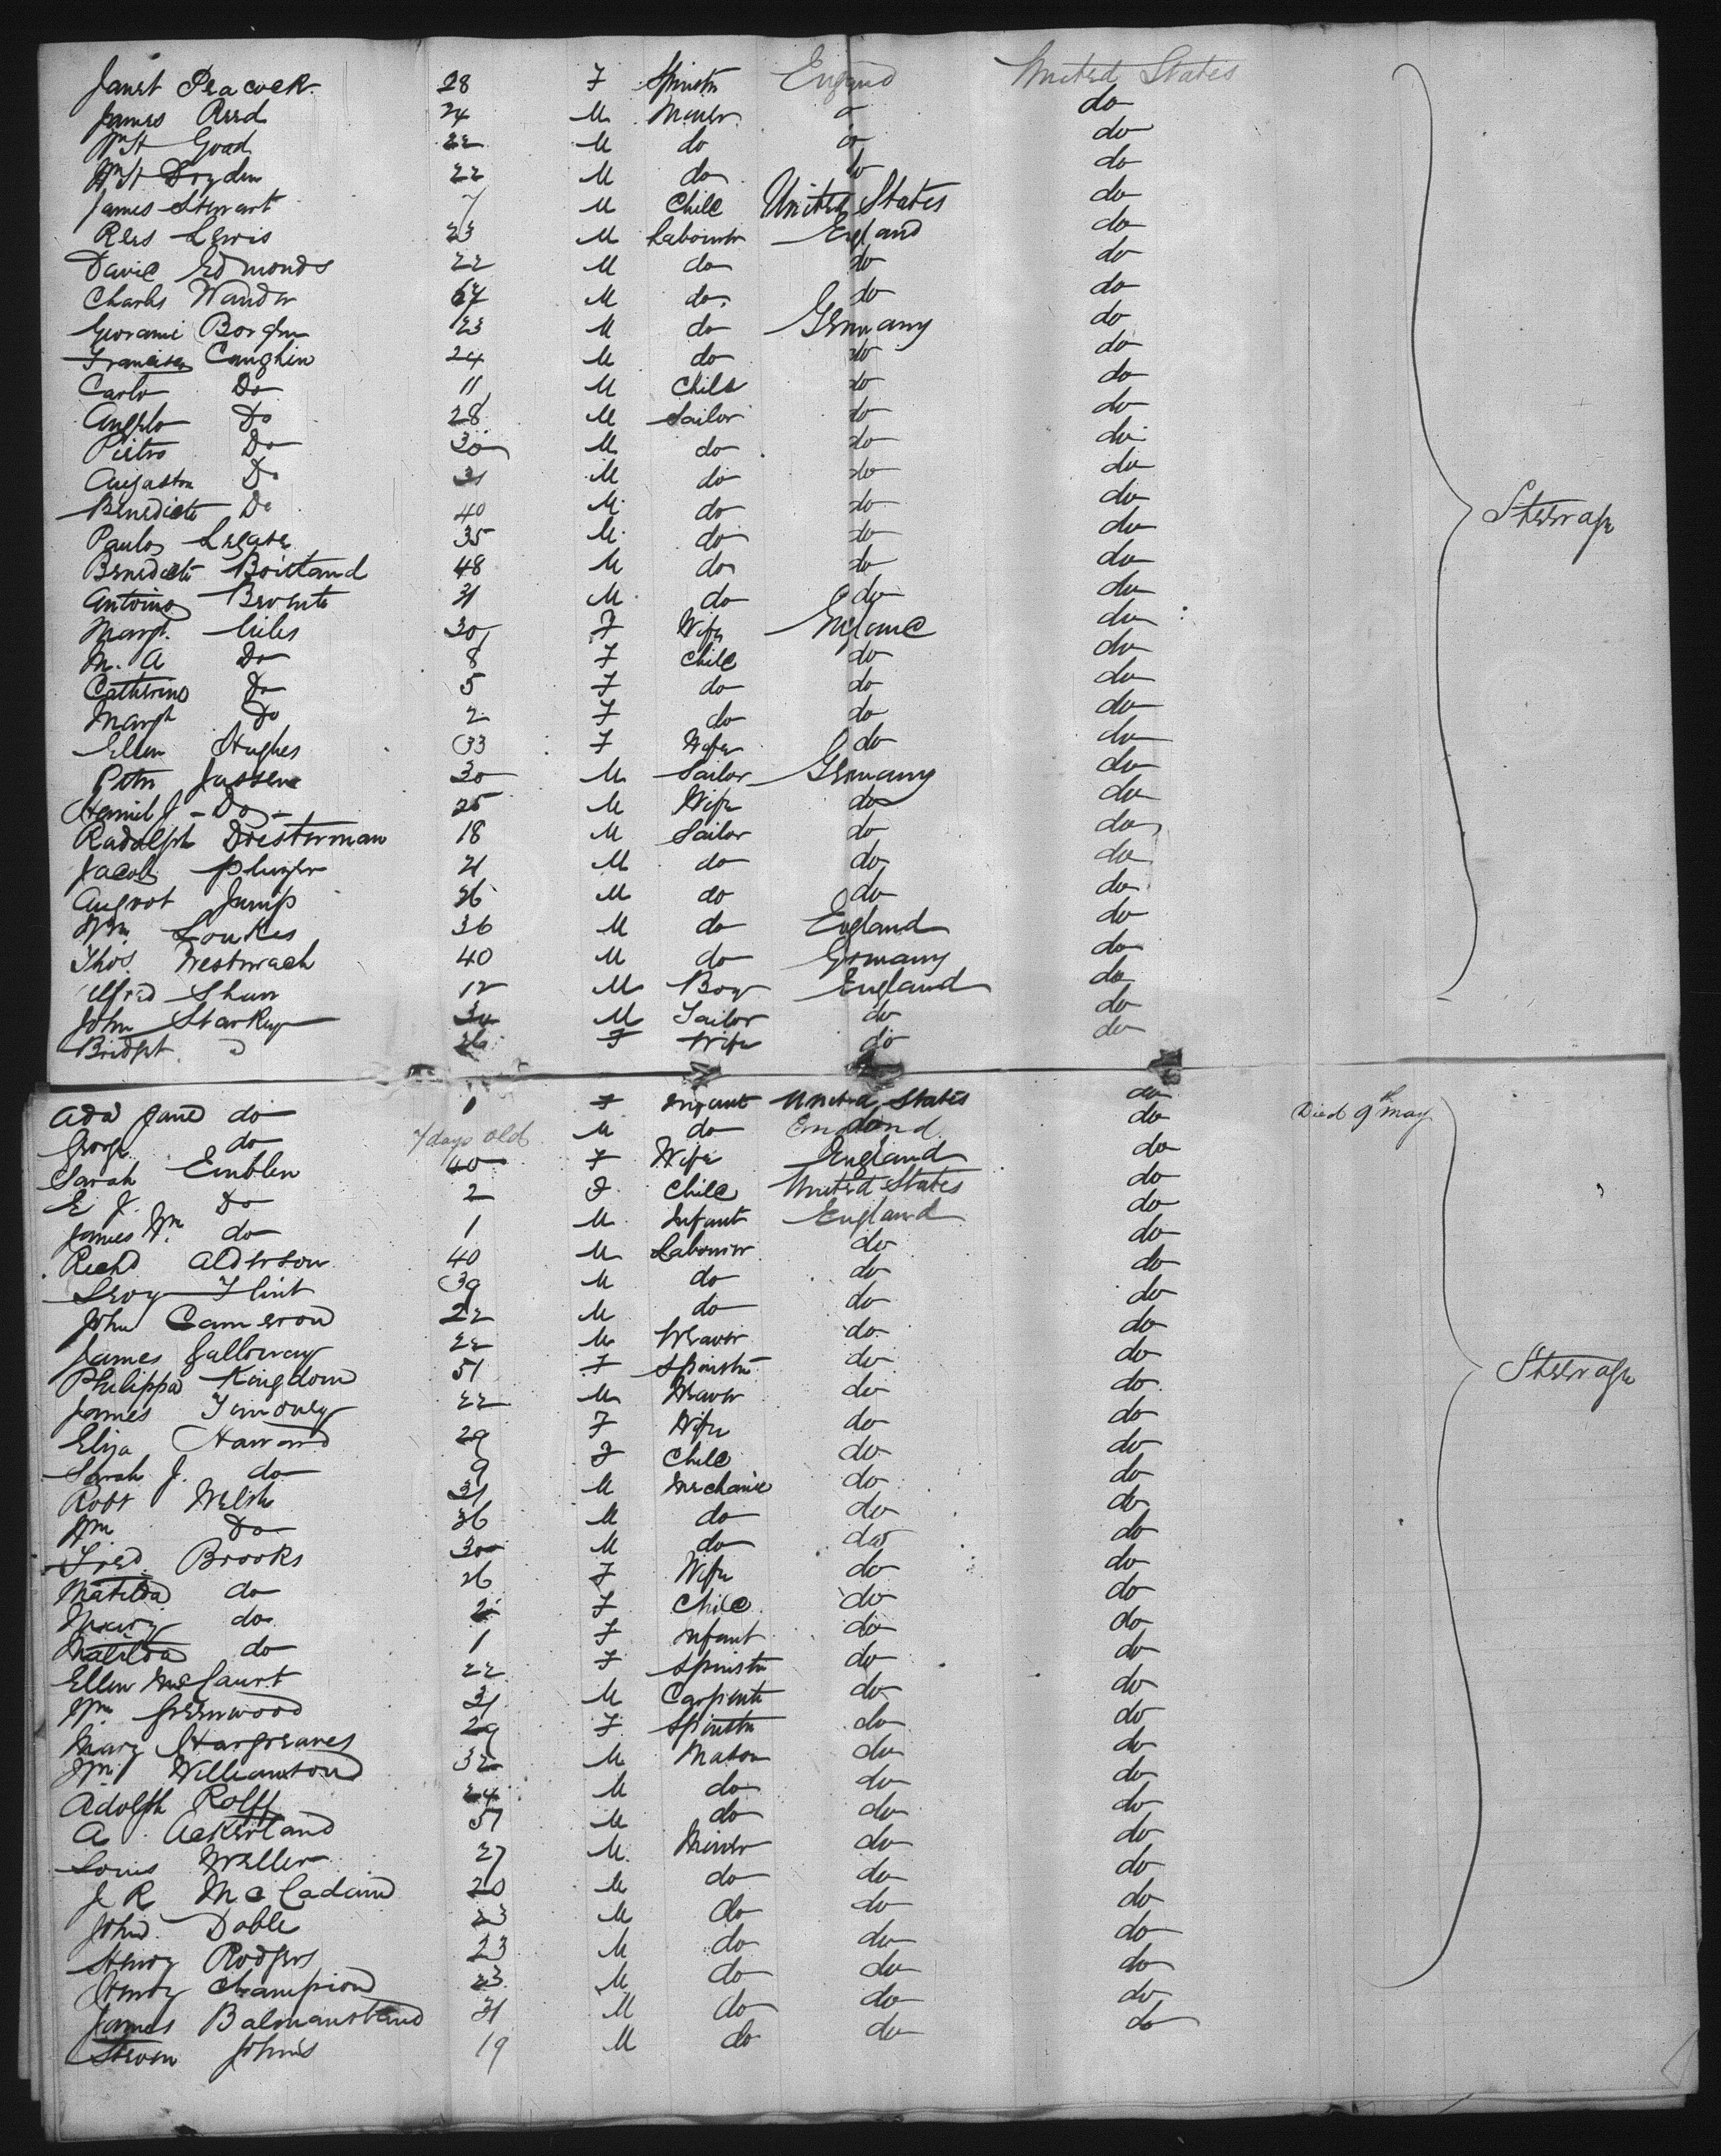 Janet Peacock 28 F Spinstr England United States
James Reed 24 M Miner do do
Wm H Goad 22 M do do do
Wm H Dryden 22 M do do do
James Stewart 7 M Child United States do
Rees Lewis 23 M Labourer England do
David Edmonds 22 M do do do
Charles Wander 67 M do do do
23 M do Germany do
Francisca Caughin 24 M do do do
Carlo Do 11 M Child do do
Angelo Do 28 M Sailor do do
Pietro Do 30 M do do do
Do 31 M do do do
Benedicto Do 40 M do do do
Steerage
Paulo 35 M do do do
Benedicto 48 M do do do
Antoino 31 M do do do
Margt. Miles 30 F Wife England do
M. A Do 8 F Child do do
Catherine Do 5 F do do do
Margt Do 2 F do do do
Ellen Hughes 33 F Wife do do
Peter Jassen 30 M Sailor Germany do
J - Do - 25 M Wife do do
Radolph Driesterman 18 M Sailor do do
Jacob 21 M do do do
August Jump 26 M do do do
Wm. Loukes 36 M do England do
Thos. Westwrach 40 M do Germany do
Alfred Shaw 12 M Boy England do
John Starkey 30 M Tailor do do
Bridget do 26 F Wife do do
Ada Jane do 1 F Infant United States do Died 9th May
George do 7 days old M do England do
Sarah Emblen 40 F Wife England do
E J. Do 2 F Child United States do
James Wm do 1 M Infant England do
Richd Alderson 40 M Labourer do do
Levy Flint 39 M do do do
John Cameron 22 M do do do
James Galloway 22 M Weaver do do
Philippa Kingdom 51 F Spinstr do do
Steerage
James Timoney 22 M Weaver do do
Eliza Haward 29 F Wife do do
Sarah J. do 9 F Child do do
Robt Welsh 31 M Mechanic do do
Wm Do 36 M do do do
Fred Brooks 30 M do do do
Matilda do 26 F Wife do do
Mary do 2 F Child do do
Matilda do 1 F Infant do do
Ellen McCaurt 22 F Spinstr do do
Wm Greenwood 31 M Carpenter do do
Mary Hargreaves 29 F Spinstr do do
Wm Williamson 32 M Mason do do
Adolph Rolff 24 M do do do
A. Ackerland 51 M do do do
Louis Weller 27 M Miner do do
J R McCadam 20 M do do do
John Dable 23 M do do do
Henry Rodgers 23 M do do do
Henry Champion 23 M do do do
James 31 M do do do
Steven Johns 19 M do do do